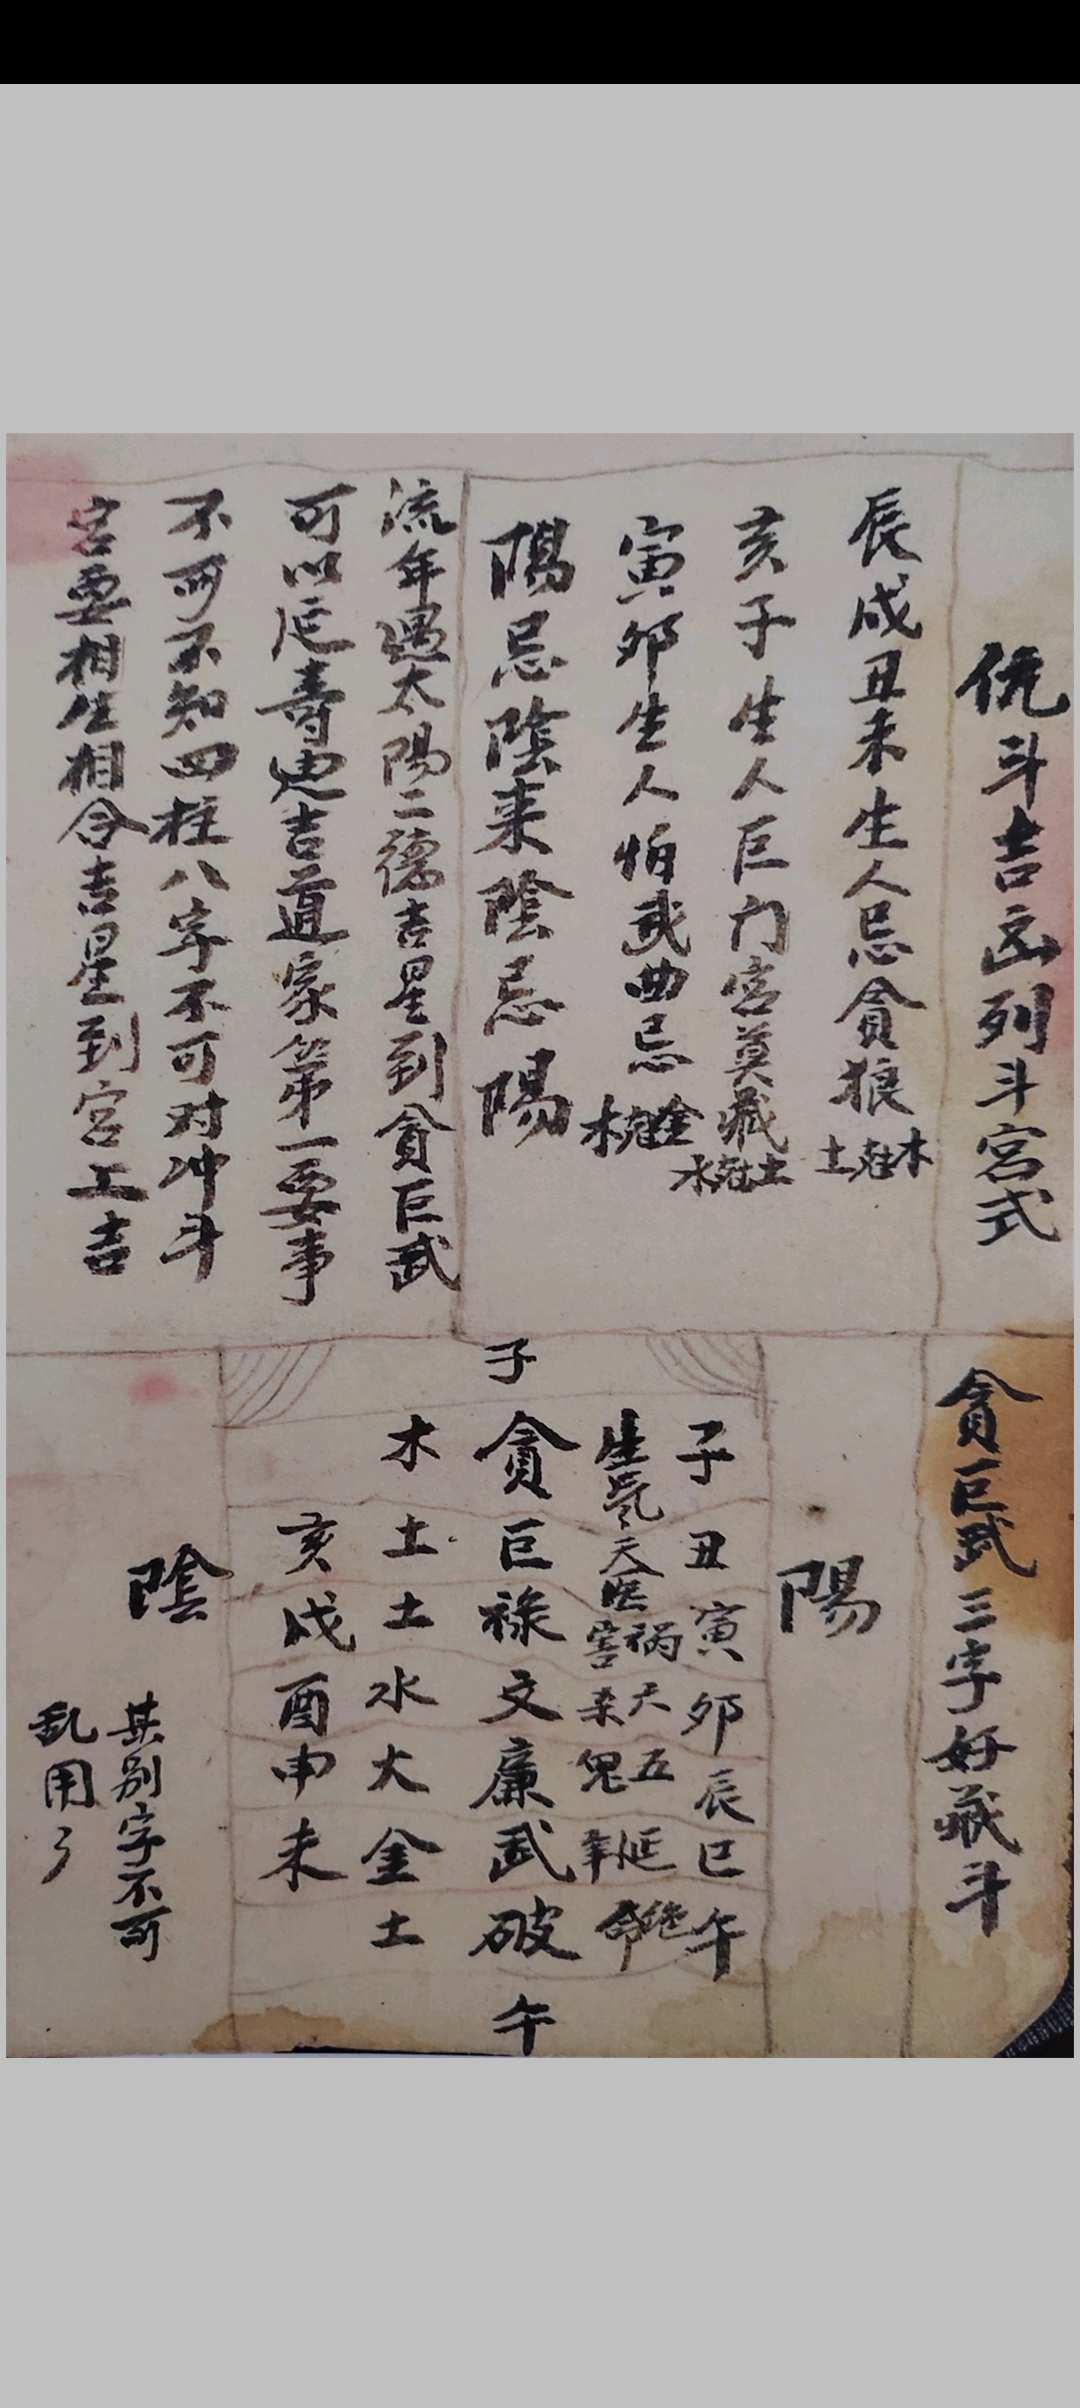 侊斗吉凶列斗宮式
辰戌丑未生人忌貪狼 木尅土
亥子生人巨门宮莫藏 土尅水
寅卯生人怕武曲忌 金尅木
陽忌陰来陰忌陽
流年遇太陽二德吉星到貪巨武
可以延寿迪吉道家第一要事
不可不知四柱八字不可对冲斗
宮要相生相合吉星到宮上吉
貪巨武三字好藏斗
陽
子
子丑寅卯辰巳午
生気天医祸害天杀五鬼延年绝命
貪巨祿文廉武破
木土土水火金土
亥戌酉申未
午
陰
其别字不可
乱用了